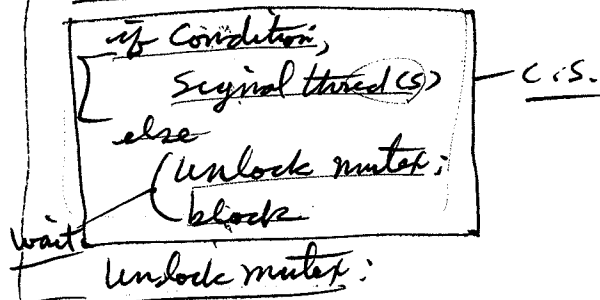 if Condition,
signal thred(s)
C.S.
else
(unlock mutex;
block
wait
Unlock mutex;